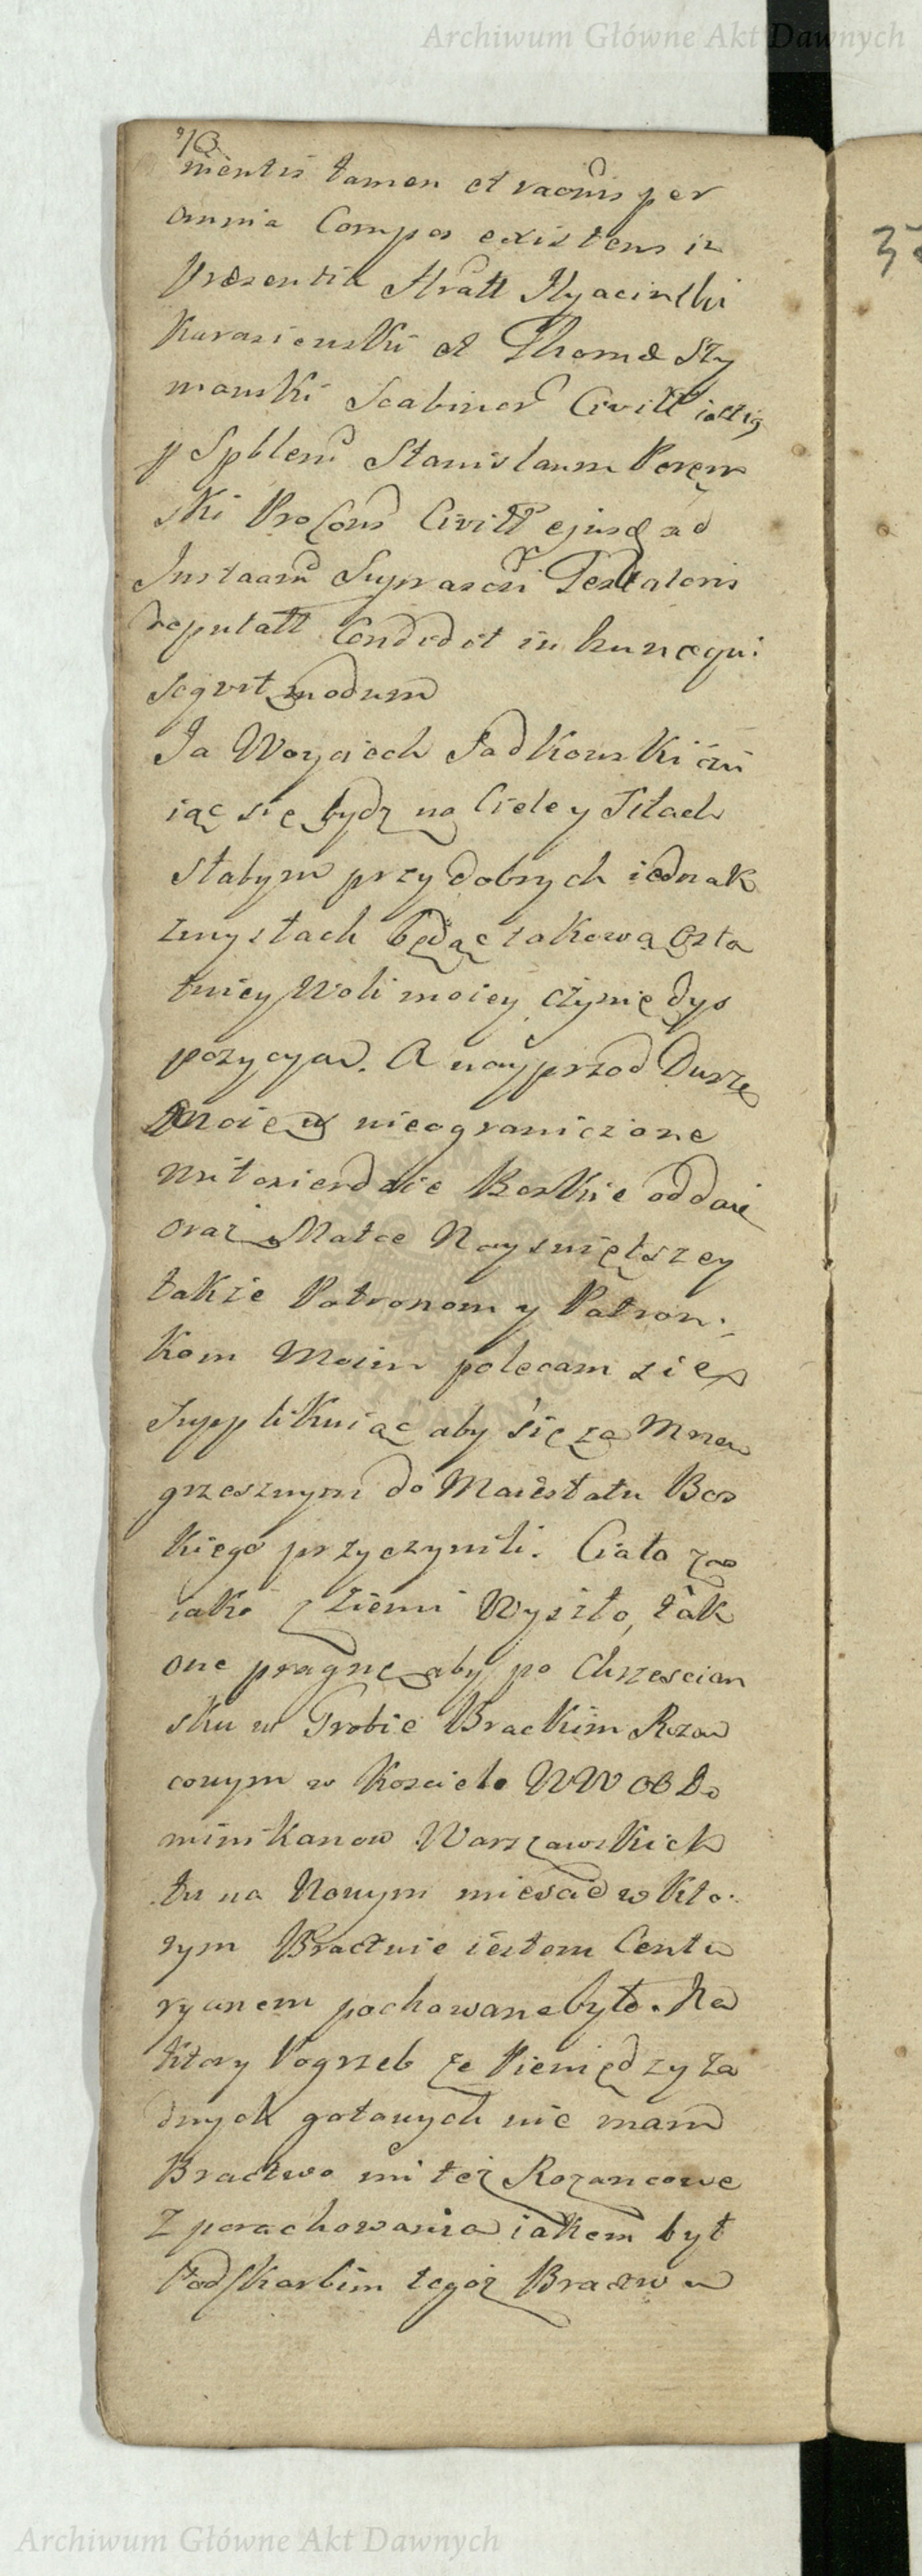 Archiwum Główne Akt Dawnych
mentis tamen et raonis per
omnia Compos existens in
Præsentia Hyacinthi
Karasienski et Thomæ Szy
manski Scabinor Civitt
p Spblem Stanislaum Poręm
ski ProCons Civitt ejusd ad
Instaam Suprascri Testatoris
deputatt Condidit in hunc qui
seqvit modum
Ja Woyciech Sadkowski czu
iąc się bydz na Ciele y Siłach
słabym przy dobrych iednak
zmysłach będąc takową osta
tniey Woli moiey czynię dys
pozycyą. A nayprzod Duszę
Moię w nieograniczone
Miłosierdzie Boskie oddaię
oraz Matce Nayswiętszey
także Patronom y Patron:
kom Moim polecam się
Supplikuiąc aby się za Mną
grzesznym do Maiestatu Bos
kiego przyczynili. Ciało zas
iako z ziemi Wyszło, tak
one pragnę aby po Chrzescian
sku w Grobie Brackim Rozan
cowym w Kosciele WW OO Do
minikanow Warszawskich
tu na Nowym miescie w Kto:
rym Bractwie iestem Centu
ryanem pochowane było. Na
Ktory Pogrzeb że Pieniędzy ża
dnych gotowych nie mam
Bractwo mi też Rozancowe
Z porachowania iakem był
Podskarbim tegoż Bractwa
Archiwum Główne Akt Dawnych